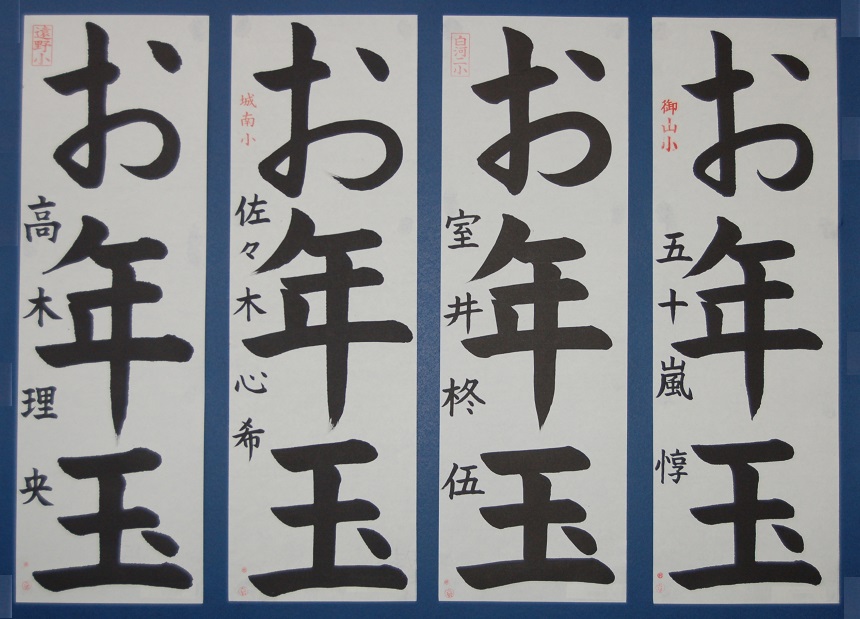 お年玉
遠野小
高木理央
お年玉
城南小
佐々木心希
お年玉
白河二小
室井柊伍
お年玉
御山小
五十嵐惇